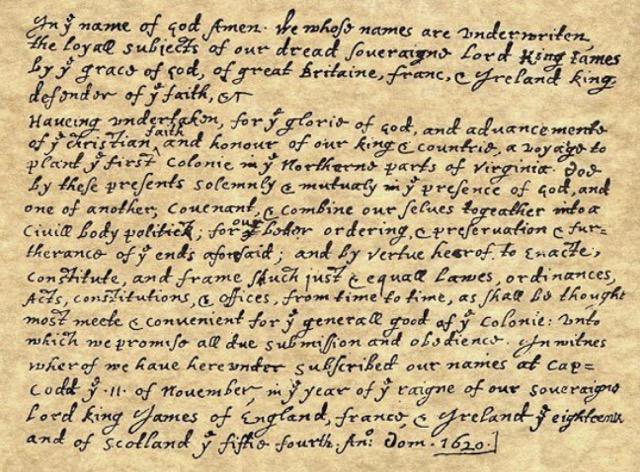 In yͤ name of god Amen. We whose names are vnderwriten,
the loyall subjects of our dread soveraigne Lord King James
by yͤ grace of god, of great Britaine, franc, & Ireland king,
defender of yͤ faith, &c
Haveing vndertaken, for yͤ glorie of god, and advancemente
of yͤ christian faith and honour of our king & countrie, a voyage to
plant yͤ first colonie in yͤ Northerne parts of Virginia. Doe
by these presents solemnly & mutualy in yͤ presence of god, and
one of another, covenant, & combine our selves togeather into a
Civill body politick; for our better ordering, & preservation & fur=
therance of yͤ ends aforsaid; and by vertue hearof, to Enacte,
constitute, and frame shuch just & equall Lawes, ordinances,
Acts, constitutions, & offices, from time to time, as shall be thought
most meete & convenient for yͤ generall good of yͤ colonie: vnto
which we promise all due submission and obedience. In witnes
wherof we have hereunder subscribed our names at Cap=
Codd yͤ .11. of November, in yͤ year of yͤ raigne of our soveraigne
Lord king James of England, france, & Ireland yͤ eighteenth
and of Scotland yͤ fiftie fourth. Anᵒ: Dom. 1620.]